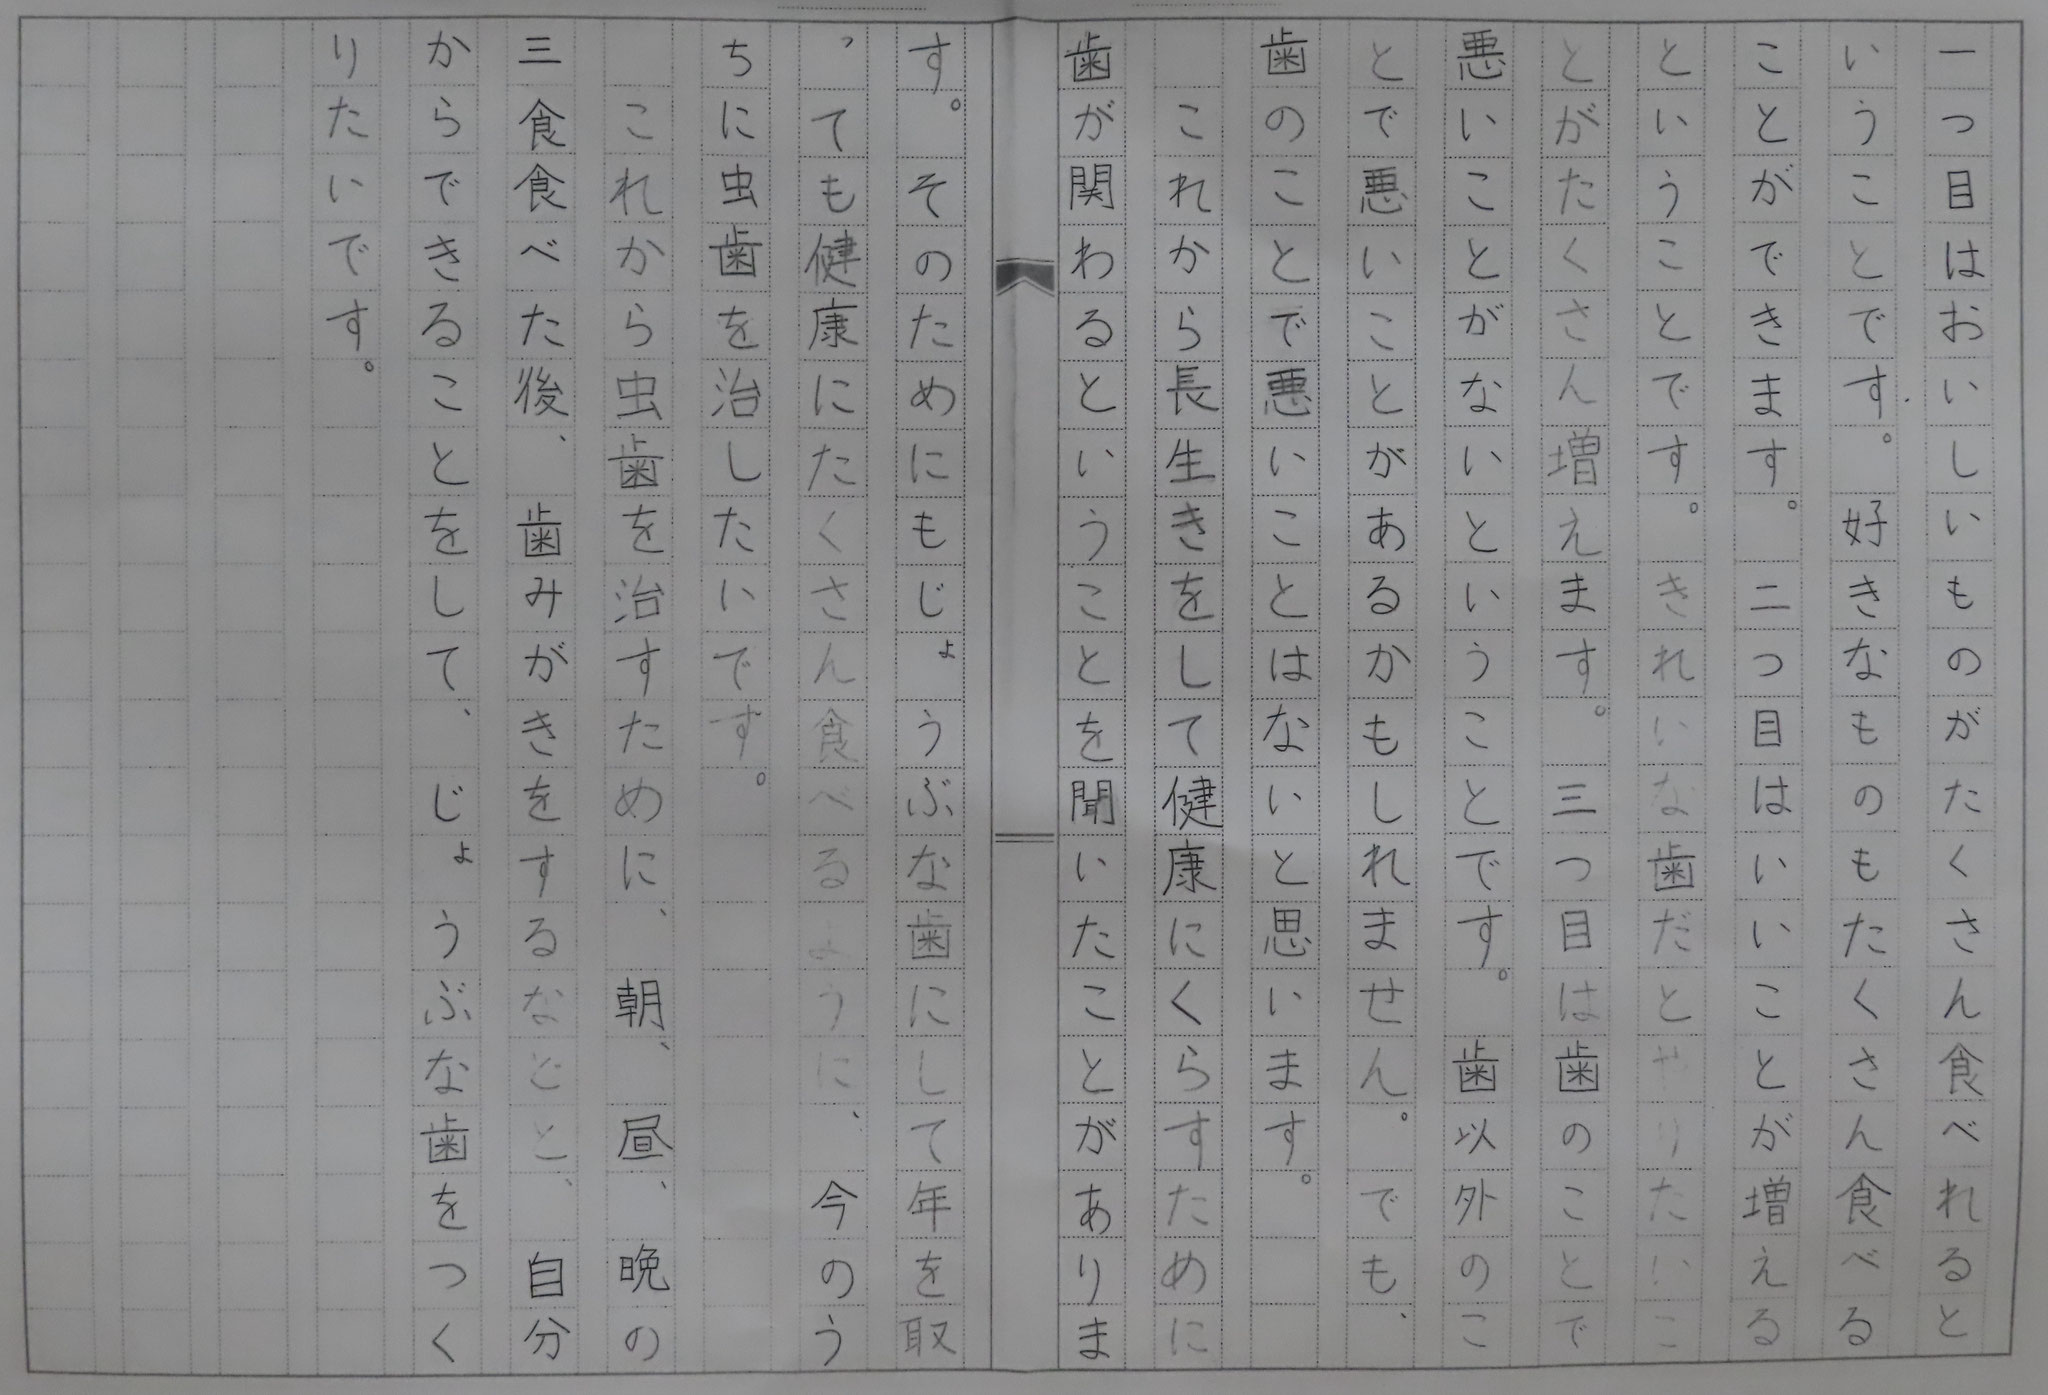 一つ目はおいしいものがたくさん食べれると
いうことです。好きなものもたくさん食べる
ことができます。二つ目はいいことが増える
ということです。きれいな歯だとやりたいこ
とがたくさん増えます。三つ目は歯のことで
悪いことがないということです。歯以外のこ
とで悪いことがあるかもしれません。でも、
歯のことで悪いことはないと思います。
これから長生きをして健康にくらすために
歯が関わるということを聞いたことがありま
す。そのためにもじょうぶな歯にして年を取
っても健康にたくさん食べるように、今のう
ちに虫歯を治したいです。
これから虫歯を治すために、朝、昼、晩の
三食食べた後、歯みがきをするなどと、自分
からできることをして、じょうぶな歯をつく
りたいです。